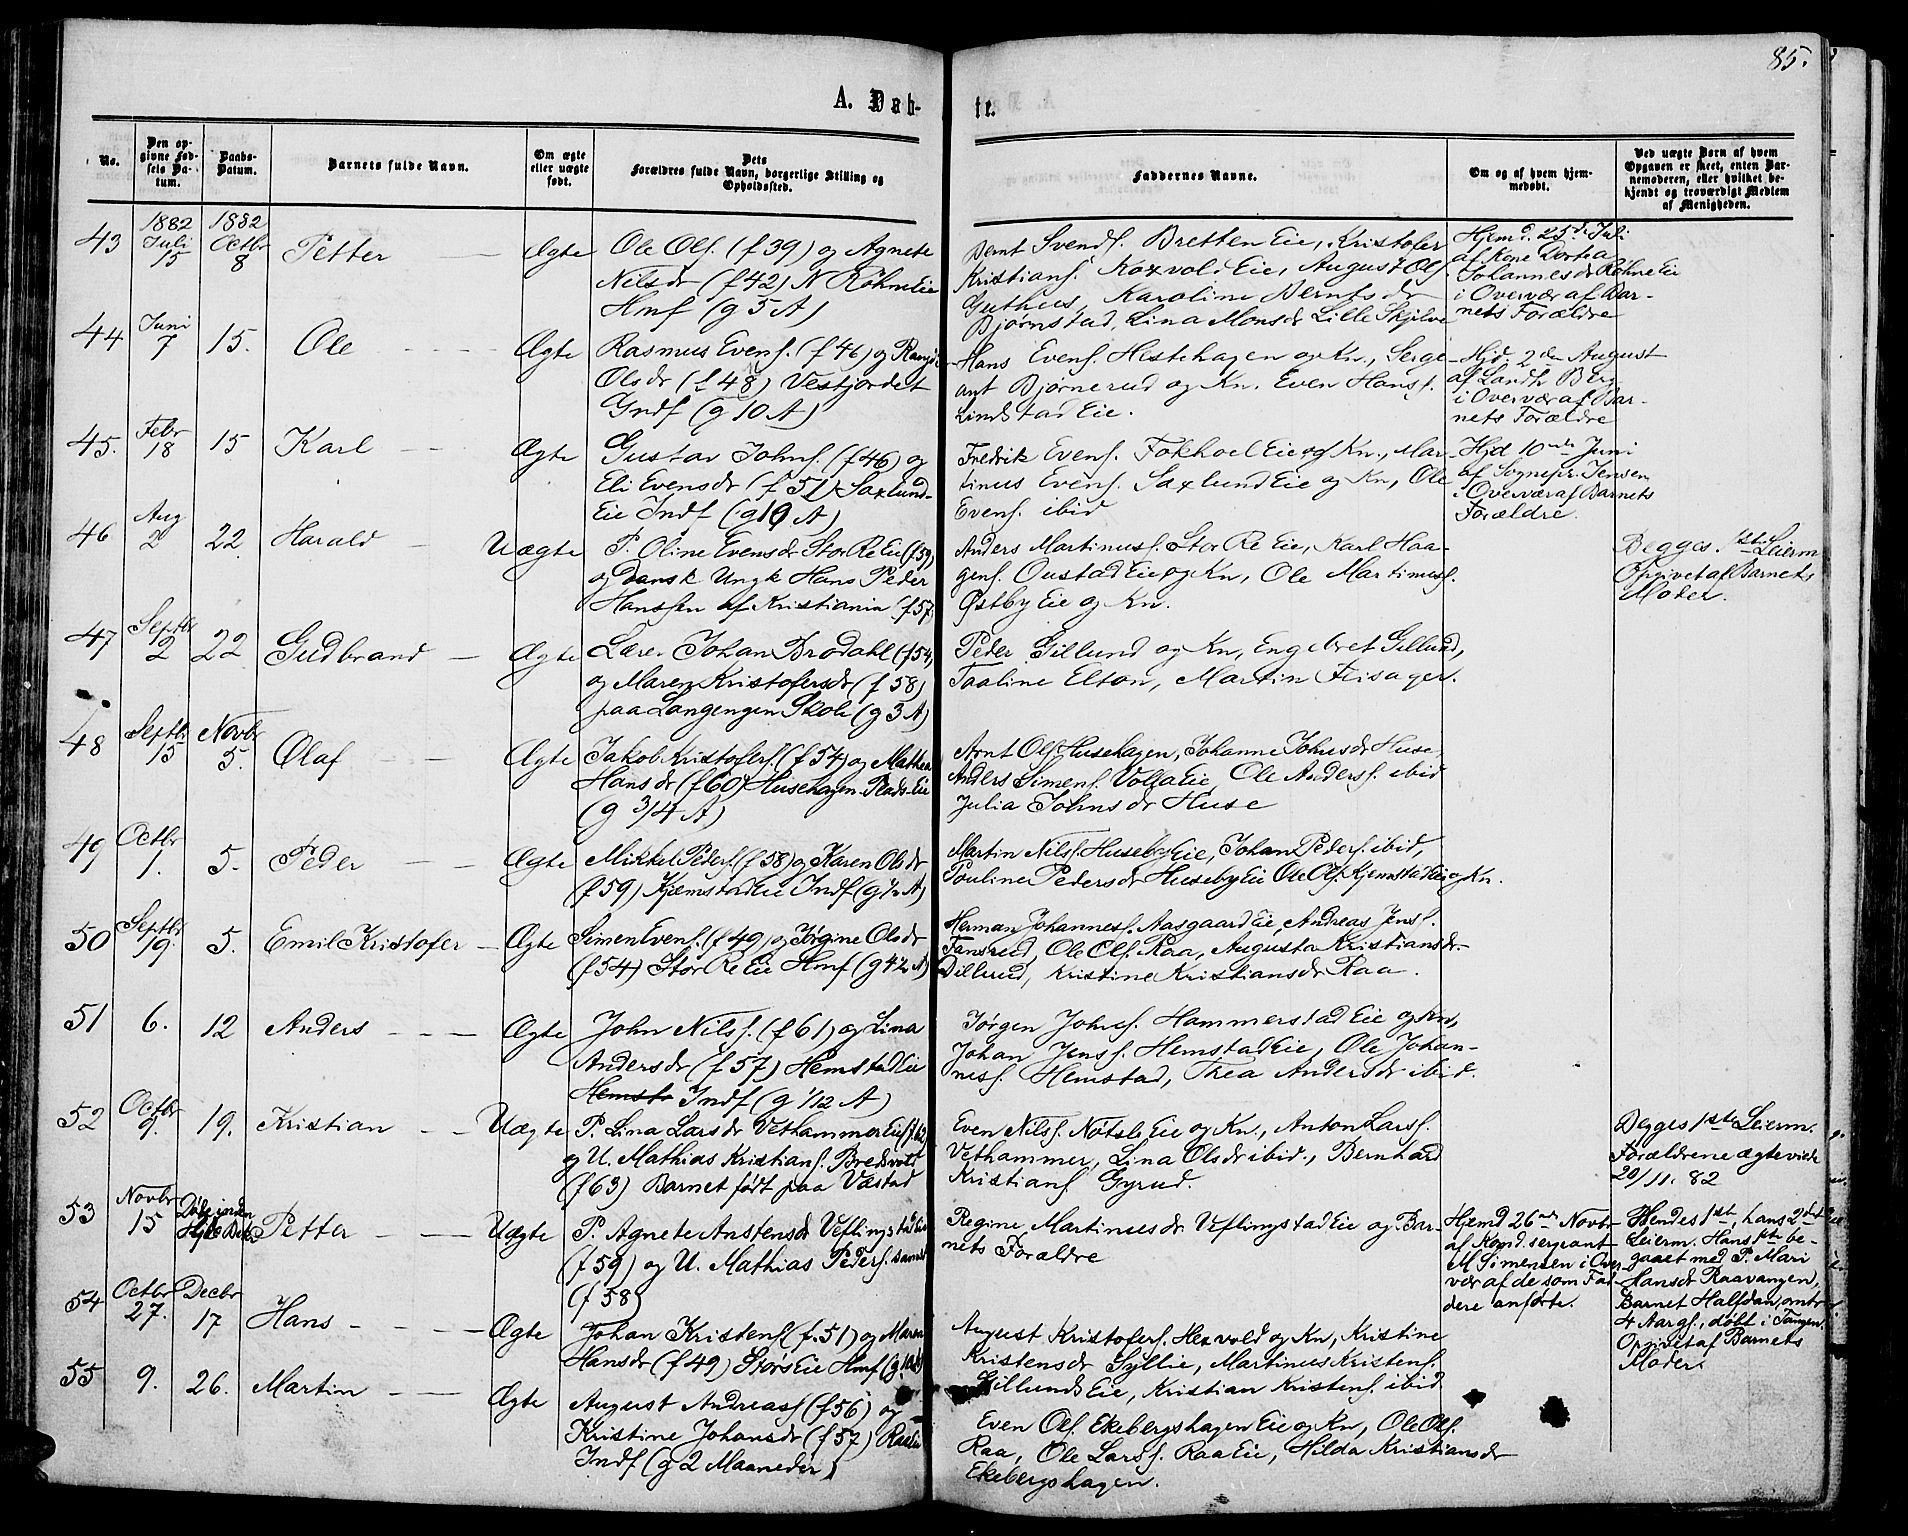 85.
A. Døb-
te.
No.
Den op-
givne Fød-
sels Da-
tum.
Daabs-
Datum.
Barnets fulde Navn.
Om ægte
eller uægte
født.
Dets
Forældres fulde Navn, borgerlige Stilling og
Opholdssted.
Faddernes Navne.
Om og af hvem hjem-
medøbt.
Ved uægte Børn af hvem
Opgaven er skeet, enten Bar-
nemoderen, eller hvilket be-
kjendt og troværdigt Medlem
af Menigheden.
43
1882
Juli
15
1882
Octbr
8
Petter
Ægte
Ole Ols. (f 39) og Agnete
Nilsdr (f 42) N Røhne Eie
Hmf (g 5 A)
Bernt Svends. Bretten Eie, Kristofer
Kristians. Koxvold Eie, August Ols.
Guthus, Karoline Berntsdr
Bjørnstad, Lina Monsdr Lille Skjelve
Hjemd. 25de Juli
af Kone Dortea
Johannesdr Røhne Eie
i Overvær af Bar-
nets Forældre
44
Juni
7
15.
Ole
Ægte
Rasmus Evens. (f 46) og Rangdi
Olsdr (f 48) Vestjordet
Indf (g 10 A)
Hans Evens. Hestehagen og Kn., Serge-
ant Bjørnerud og Kn. Even Hans.
Lindstad Eie.
Hjd. 2den August
af Landh. Berg
i Overvær af Bar-
nets Forældre
45.
Febr
18
15
Karl
Ægte
Gustav Johns. (f 46) og
Eli Evensdr (f 51) Saxlund-
Eie Indf (g 19 A)
Fredrik Evens. Fokhoel Eie og Kn., Mar-
tinus Evens. Saxlund Eie og Kn, Ole
Evens. ibid
Hjd 10nde Juni
af Sognepr. Jensen
i Overvær af Barnets
Forældre.
46
Aug
2
22
Harald
Uægte
P. Oline Evensdr Stor Re Eie (f 59)
og Dansk Ungk Hans Peder
Hanssen af Kristiania (f 57
Anders Martinus. Stor Re Eie, Karl Haa-
gens. Oustad Eie og Kn, Ole Martinus.
Østby Eie og Kn.
Begges 1ste Leierm
Opgivet af Barnets
Moder.
47
Septbr
2
22
Gudbrand
Ægte
Lærer Johan Brodahl (f 54)
og Maren Kristofersdr (f 58)
paa Langengen Skole (g 3 A)
Peder Gillund og Kn, Engebret Gillund,
Taaline Elton, Martin Flisager.
48
Septbr
15
Novbr
5.
Olaf
Ægte
Jakob Kristofers. (f 54) og Mathea
Hansdr (f 60) Husehagen Plads Eie
(g 3/4 A)
Arnt Ols Husehagen, Johanne Johnsdr Huse
Anders Simens. Volla Eie, Ole Anders. ibid
Julia Johnsdr Huse
49
Octbr
1.
5.
Peder
Ægte
Mikkel Peders. (f 58) og Karen Olsdr
(f 59) Kjemstad Eie Indf (g ½ A)
Martin Nils. Huseby Eie, Johan Peders. ibid,
Pouline Pedersdr Huseby Eie Ole Ols. Kjemstad Eie og Kn.
50
Septbr
19.
5.
Emil Kristofer
Ægte
Simen Evens. (f 49) og Jørgine Olsdr
(f 54) Stor Re Eie Hmf (g 4½ A)
Herman Johannes. Aasgaard Eie, Andreas Jens.
Fansrud, Ole Ols. Raa, Augusta Kristiansdr
Dillerud, Kristine Kristiansdr Raa.
51
6.
12
Anders
Ægte
John Nils. (f 61) og Lina
Andersdr (f 57) Hemstad Eie
Hemst Indf (g 1/12 A)
Jørgen Johs. Hammerstad Eie og Kn,
Johan Jens. Hemstad Eie, Ole Johan-
nes. Hemstad, Thea Andersdr ibid.
52
Octbr
9.
19.
Kristian
Uægte
P. Lina Larsdr Vethammer Eie (f 62)
og U. Mathias Kristians. Bredvold
(f 63) Barnet født paa Væstad
Even Nils. Nøtsle Eie og Kn., Anton Lars.
Vethammer, Lina Olsdr ibid., Bernhard
Kristians. Gyrud.
Begges 1ste Leierm.
Forældrene ægteviede
20/11. 82
53
Novbr
15
Døde inden
Petter
Uægte
P. Agnete Anstensdr Veflingstad Eie
(f 59) og U. Mathias Peders. samst
(f 58)
Regine Martinusdr Veflingstad Eie og Bar-
nets Forældre
Hjemd 26nde Novbr
af Komd.sergeant
M Simensen i Over
vær af de som Fad
dere anførte.
Hendes 1ste, hans 2det
Leierm. Hans 1ste be-
gaaet med P. Mari
Hansdr Raavangen,
Barnet Halfdan, omtr
4 Aar g., døbt i Tangen.
Opgivet af Barnets
Moder.
54
Octbr
27.
Decbr
17
Hans
Ægte
Johan Kristens. (f. 51) og Maren
Hansdr (f 49) Størs Eie Hmf
August Kristofers. Hexvold og Kn, Kristine
Kristensdr Syllie, Martinus Kristens.
Gillunds Eie, Kristian Kristens. ibid
55
9.
26.
Martin
Ægte
August Andreas. (f 56) og
Kristine Johansdr (f 57) Raa Eie
Indf (g 2 Maaneder)
Even Ols. Ekebergshagen Eie og Kn, Ole Ols.
Raa, Ole Lars. Raa Eie, Hilda Kristiansdr
Ekebergshagen.